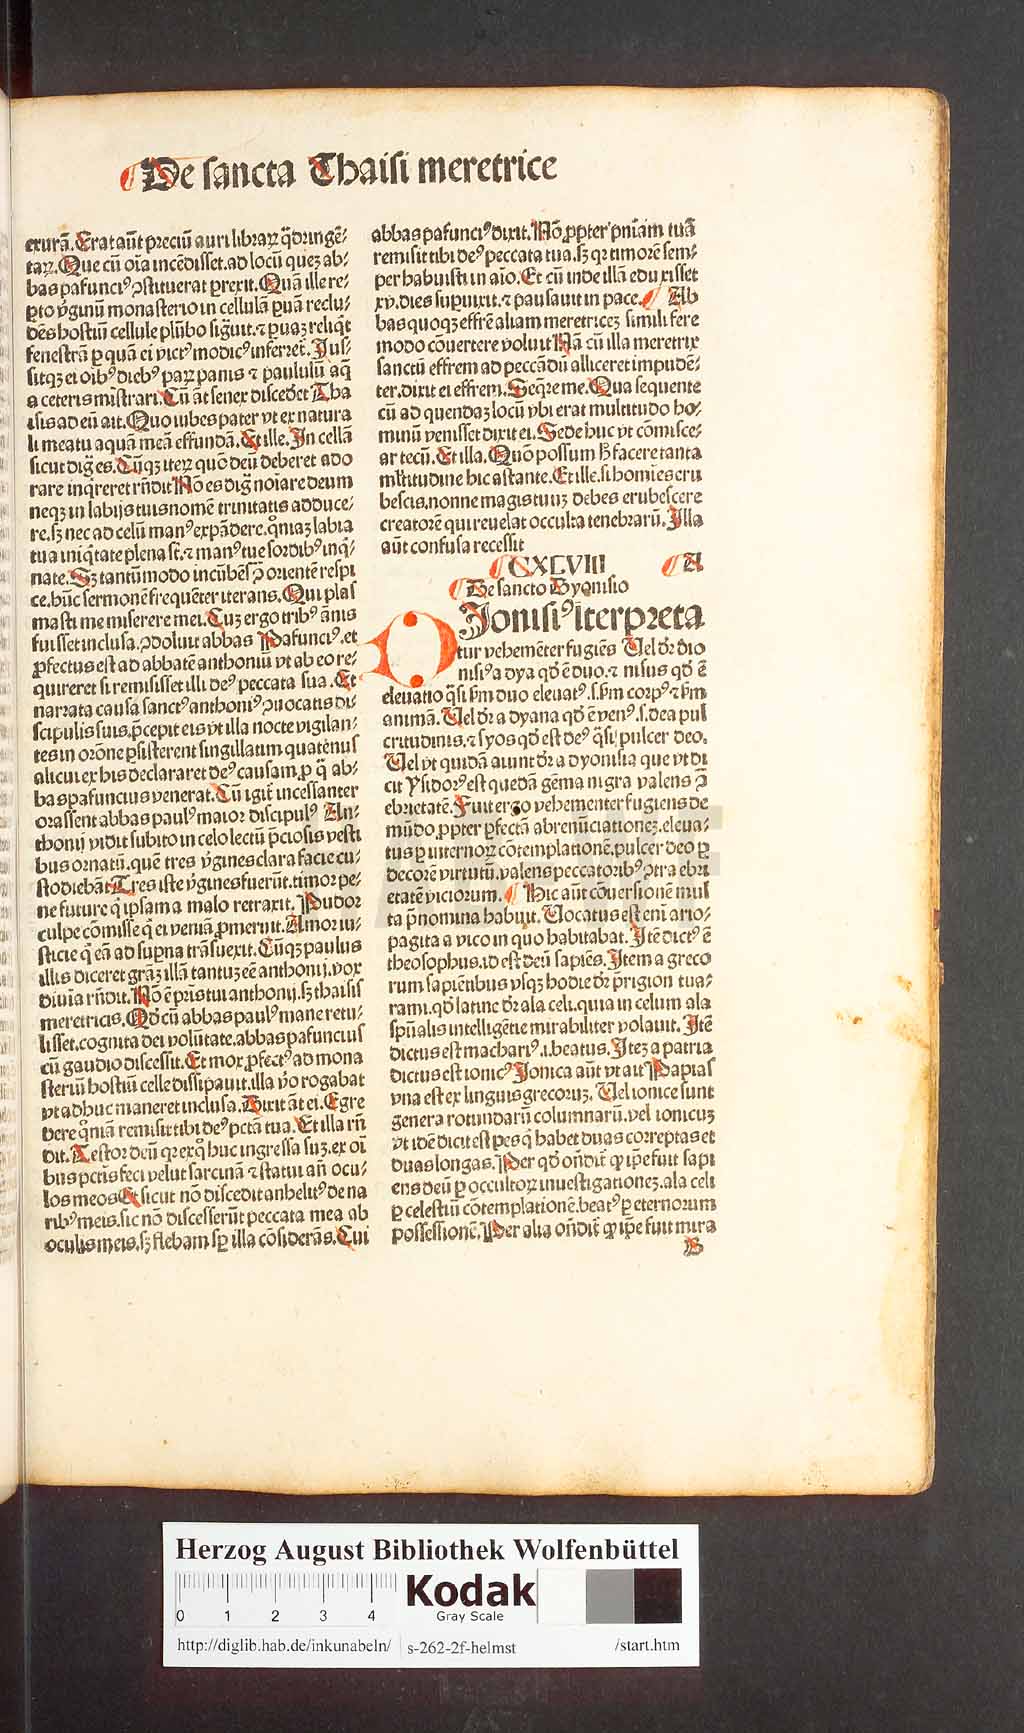 De sancta Thaisi meretrice
exurā. Erat aūt preciū auri libraꝝ q̄dringē⸗
taꝝ. Que cū oīa incēdisset. ad locū quez ab⸗
bas pafunciꝰ ꝯstituerat perexit. Quā ille re⸗
p̱to v̄ginū monasterio in cellulā ꝑuā reclu⸗
dēs hostiū cellule plūbo sigͥuit. ⁊ ꝑuaꝫ reliqͥt
fenestrā ꝑ quā ei victꝰ modicꝰ inferret̄. Jus⸗
sitqꝫ ei oībꝰ diebꝰ paꝝ panis ⁊ paululū aq̄
a ceteris mīstrari. Cū āt senex discederet Tha
isis ad eū ait. Quo iubes pater vt ex natura
li meatu aquā meā effundā. Et ille. In cella
sicut digͣ es. Cūqꝫ iteꝝ quō deū deberet ado
rare inqͥreret rn̄dit Nō es digͣ noīare deum
neqꝫ in labijs tuis nomē trinitatis adduce⸗
re. sꝫ nec ad celū manꝰ expādere. qm̄ꝫ labia
tua iniqͥtate plena st̄. ⁊ manꝰ tue sordibꝰ inqͥ⸗
nate. Sꝫ tantūmodo incūbēs ꝯ orientē respi
ce. hūc sermonē frequēter iterans. Qui plas
masti me miserere mei. Cuꝫ ergo tribꝰ ānis
fuisset inclusa. ꝯdoluit abbas Pafunciꝰ. et
ꝓfectus est ad abbatē anthoniū vt ab eo re⸗
quireret si remisisset illi deꝰ peccata sua. Et
narrata causa sanctꝰ anthoniꝰ ꝯuocatis di⸗
scipulis suis. p̄cepit eis vt illa nocte vigilan⸗
tes in orōne ꝑsisterent singillatim quatenus
alicui ex his declararet deꝰ causam. ꝓ q̄ ab⸗
bas pafuncius venerat. Cū igit̄ incessanter
orassent abbas paulꝰ maior discipulꝰ An⸗
thonij vidit subito in celo lectū p̄ciosis vesti
bus ornatū. quē tres v̄gines clara facie cu⸗
stodiebāt. Tres iste v̄gines fuerūt. timor pe⸗
ne future qͥ ipsam a malo retraxit. Pudor
culpe cōmisse qͥ ei veniā ꝓmeruit. Amor iu⸗
sticie qͥ eā ad sup̄na trāsuexit. Cūqꝫ paulus
illis diceret grāꝫ illā tantuꝫ eē anthonij. vox
diuīa rn̄dit. Nō ē pr̄is tui anthonij. sꝫ thaisis
meretricis. Qd̄ cū abbas paulꝰ mane retu⸗
lisset. cognita dei volūtate. abbas pafuncius
cū gaudio discessit. Et mox ꝓfectꝰ ad mona
steriū hostiū celle dissipauit. illa vͦo rogabat
vt adhuc maneret inclusa. Dixit āt ei. Egre
dere qm̄ iam remisit tibi deꝰ pctā tua. Et illa rn̄
dit. Testor deū qꝛ ex qͦ huc ingressa suꝫ. ex oī
bus pctīs feci velut sarcinā ⁊ statui an̄ ocu⸗
los meos Et sicut nō discedit anhelitꝰ de na
ribꝰ meis. sic nō discesserūt peccata mea ab
oculis meis. sꝫ flebam sꝑ illa cōsiderās. Cui
abbas pafunciꝰ dixit. Nō ꝓpter pn̄iam tuā
remisit tibi deꝰ peccata tua. sꝫ qꝛ timorē sem⸗
per habuisti in aīo. Et cū inde illā eduxisset
xv. dies supuixit. ⁊ pausauit in pace. Ab
bas quoqꝫ effrē aliam meretriceꝫ simili fere
modo cōuertere voluit Nā cū illa meretrix
sanctū effrem ad peccādū alliceret impudē⸗
ter. dixit ei effrem. Seqͥre me. Qua sequente
cū ad quendaꝫ locū vbi erat multitudo ho⸗
minū venisset dixit ei. Sede huc vt cōmisce⸗
ar tecū. Et illa. Quō possum hͦ facere tanta
ml̄titudine hic astante. Et ille. si homīes eru
bescis. nonne magis tuuꝫ debes erubescere
creatorē qui reuelat occulta tenebrarū. Illa
aūt confusa recessit
CXLVIII A
De sancto Dyonisio
Jonisiꝰ īterpreta
tur vehemēter fugiēs Uel dr̄ dio
nisiꝰ a dya qd̄ ē duo. ⁊ nisus qd̄ ē
eleuatio q̄si ẜm duo eleuatꝰ. s. ẜm corpꝰ ⁊ ẜm
animā. Uel dr̄ a dyana qd̄ ē venꝰ. s. dea pul
critudinis. ⁊ syos qd̄ est deꝰ q̄si pulcer deo.
Uel vt quidā aiunt dr̄ a dyonisia que vt di
cit Ysidorꝰ est quedā gēma nigra valens ꝯ̄
ebrietatē. Fuit ergo vehementer fugiens de
mūdo. ꝓpter ꝑfectā abrenūciationeꝫ. eleua⸗
tus ꝑ internoꝝ cōtemplationē. pulcer deo ꝑ
decorē virtutū. valens peccatoribꝰ ꝯtra ebri
etatē viciorum. Hic aūt cōuersionē mul
ta p̄nomina habuit. Uocatus est enī ario⸗
pagita a vico in quo habitabat. Itē dictꝰ ē
theosophus. id est deū sapiēs. Item a greco
rum sapiētibus vsqꝫ hodie dr̄ pt̄rigion tua⸗
rami. qd̄ latine dr̄ ala celi. quia in celum ala
spūalis intelligētie mirabiliter volauit. Itē
dictus est machariꝰ. i. beatus. Iteꝫ a patria
dictus est ionicꝰ Jonica aūt vt ait Papias
vna est ex linguis grecoruꝫ. Uel ionice sunt
genera rotundarū columnarū. vel ionicuꝫ
vt idē dicit est pes qͥ habet duas correptas et
duas longas. Per qd̄ ondit̄ ꝙ ip̄e fuit sapi
ens deū ꝑ occultoꝝ inuestigationeꝫ. ala celi
ꝑ celestiū cōtemplationē. beatꝰ ꝑ eternorum
possessionē. Per alia ondit̄ ꝙ ip̄e fuit mira
B
Herzog August Bibliothek Wolfenbüttel
0 1 2 3 4
Kodak
Gray Scale
http://diglib.hab.de/inkunabeln/ s-262-2f-helmst /start.htm